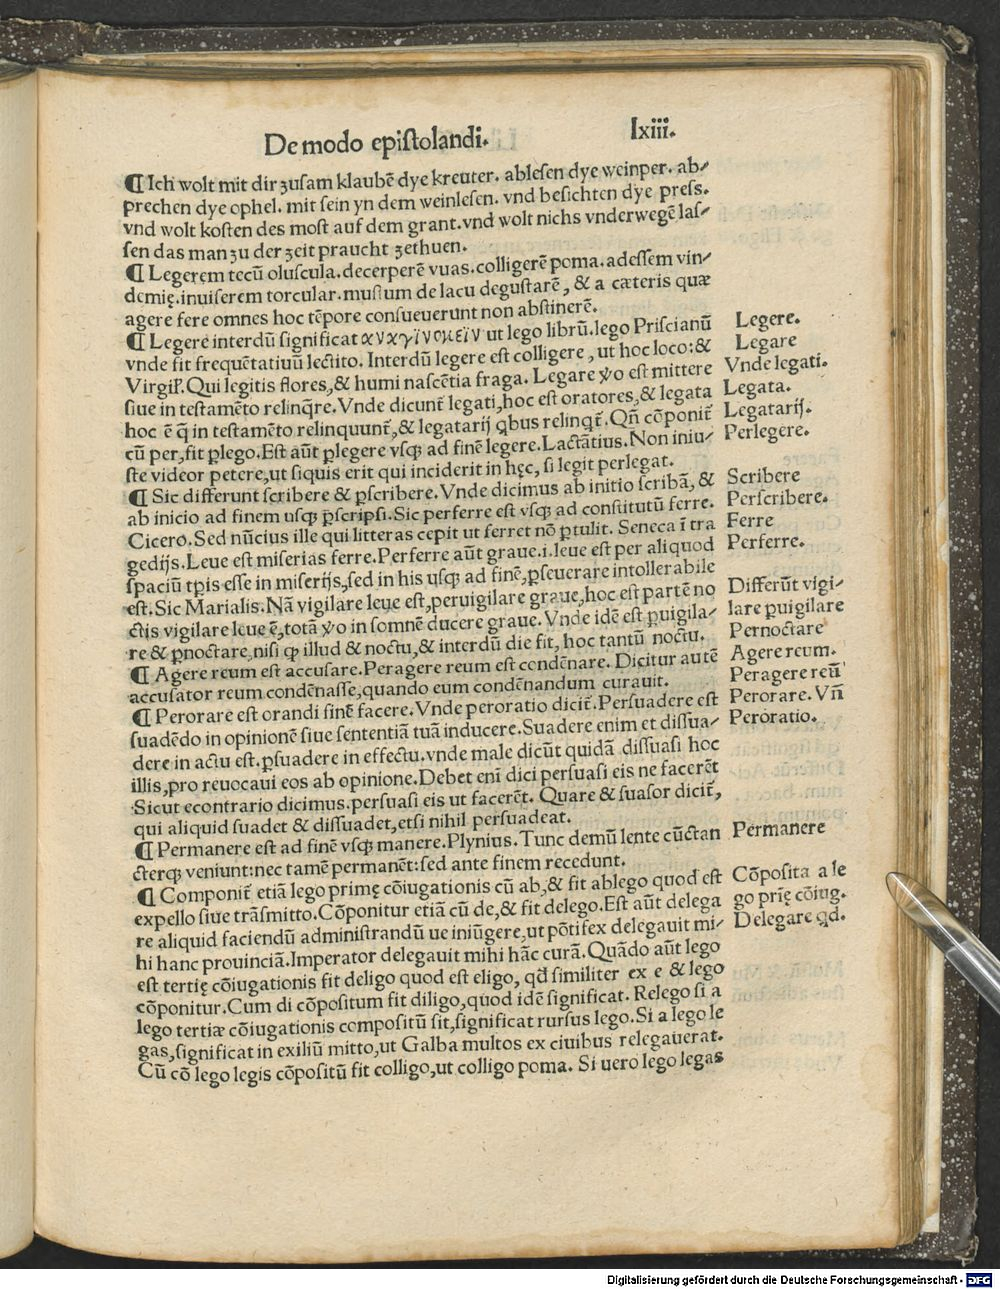 De modo epistolandi. lxiii.
¶ Ich wolt mit dir zusam klaubē dye kreuter. ablesen dye weinper. ab⸗
prechen dye ophel. mit sein yn dem weinlesen. vnd besichten dye press.
vnd wolt kosten des most auf dem grant. vnd wolt nichs vnderwegē las⸗
sen das man zu der zeit praucht zethuen.
¶ Legerem tecū oluscula. decerperē vuas. colligerē poma. adessem vin⸗
demię. inuiserem torcular. mustum de lacu degustarē, & a cæteris quæ
agere fere omnes hoc tēpore consueuerunt non abstinerē.
¶ Legere interdū significat ἀναγινώσκειν ut lego librū. lego Priscianū
vnde fit frequētatiuū lectito. Interdū legere est colligere, ut hoc loco: &
Virgiľ. Qui legitis flores, & humi nascētia fraga. Legare ꝟo est mittere
siue in testamēto relinq̄re. Vnde dicunt̄ legati, hoc est oratores, & legata
hoc ē q̄ in testamēto relinquunt̄, & legatarij qbus relinqt̄. Qn̄ cōponit̄
cū per, fit ꝑlego. Est aūt ꝑlegere vsqꝫ ad finē legere. Lactātius. Non iniu⸗
ste videor petere, ut siquis erit qui inciderit in hęc, si legit perlegat.
¶ Sic differunt scribere & ꝑscribere. Vnde dicimus ab initio scribā, &
ab inicio ad finem usqꝫ ꝑscripsi. Sic perferre est vsqꝫ ad constitutū ferre.
Cicero. Sed nūcius ille qui litteras cepit ut ferret nō ꝑtulit. Seneca ī tra
gedijs. Leue est miserias ferre. Perferre aūt graue .i. leue est per aliquod
spaciū tp̄is esse in miserijs, sed in his usqꝫ ad finē, ꝑseuerare intollerabile
est. Sic Marialis. Nā vigilare leue est, peruigilare graue, hoc est partē no
ctis vigilare leue ē, totā ꝟo in somnē ducere graue. Vnde idē est ꝑuigila⸗
re & ꝑnoctare, nisi qꝫ illud & noctu, & interdū die fit, hoc tantū noctu.
¶ Agere reum est accusare. Peragere reum est condēnare. Dicitur autē
accusator reum condēnasse, quando eum condēnandum curauit.
¶ Perorare est orandi finē facere. Vnde peroratio dicit̄. Persuadere est
suadēdo in opinionē siue sententiā tuā inducere. Suadere enim et dissua⸗
dere in actu est. ꝑsuadere in effectu. vnde male dicūt quidā dissuasi hoc
illis, pro reuocaui eos ab opinione. Debet enī dici persuasi eis ne facerēt
Sicut econtrario dicimus. persuasi eis ut facerēt. Quare & suasor dicit̄,
qui aliquid suadet & dissuadet, etsi nihil persuadeat.
¶ Permanere est ad finē vsqꝫ manere. Plynius. Tunc demū lente cūctan
cterqꝫ veniunt: nec tamē permanēt: sed ante finem recedunt.
¶ Componit̄ etiā lego primę cōiugationis cū ab, & fit ablego quod est
expello siue trāsmitto. Cōponitur etiā cū de, & fit delego. Est aūt delega
re aliquid faciendū administrandū ue iniūgere, ut pōtifex delegauit mi⸗
hi hanc prouinciā. Imperator delegauit mihi hāc curā. Quādo aūt lego
est tertię cōiugationis fit deligo quod est eligo, qd̄ similiter ex e & lego
cōponitur. Cum di cōpositum fit diligo, quod idē significat. Relego si a
lego tertiæ cōiugationis compositū sit, significat rursus lego. Si a lego le
gas, significat in exiliū mitto, ut Galba multos ex ciuibus relegauerat.
Cū cō lego legis cōpositū fit colligo, ut colligo poma. Si uero lego legas
Legere.
Legare
Vnde legati.
Legata.
Legatarij.
Perlegere.
Scribere
Perscribere.
Ferre
Perferre.
Differūt vigi⸗
lare ꝑuigilare
Pernoctare
Agere reum.
Peragere reū
Perorare. Vn̄
Peroratio.
Permanere
Cōposita a le
go prię cōiug.
Delegare qd.
Digitalisierung gefördert durch die Deutsche Forschungsgemeinschaft - DFG